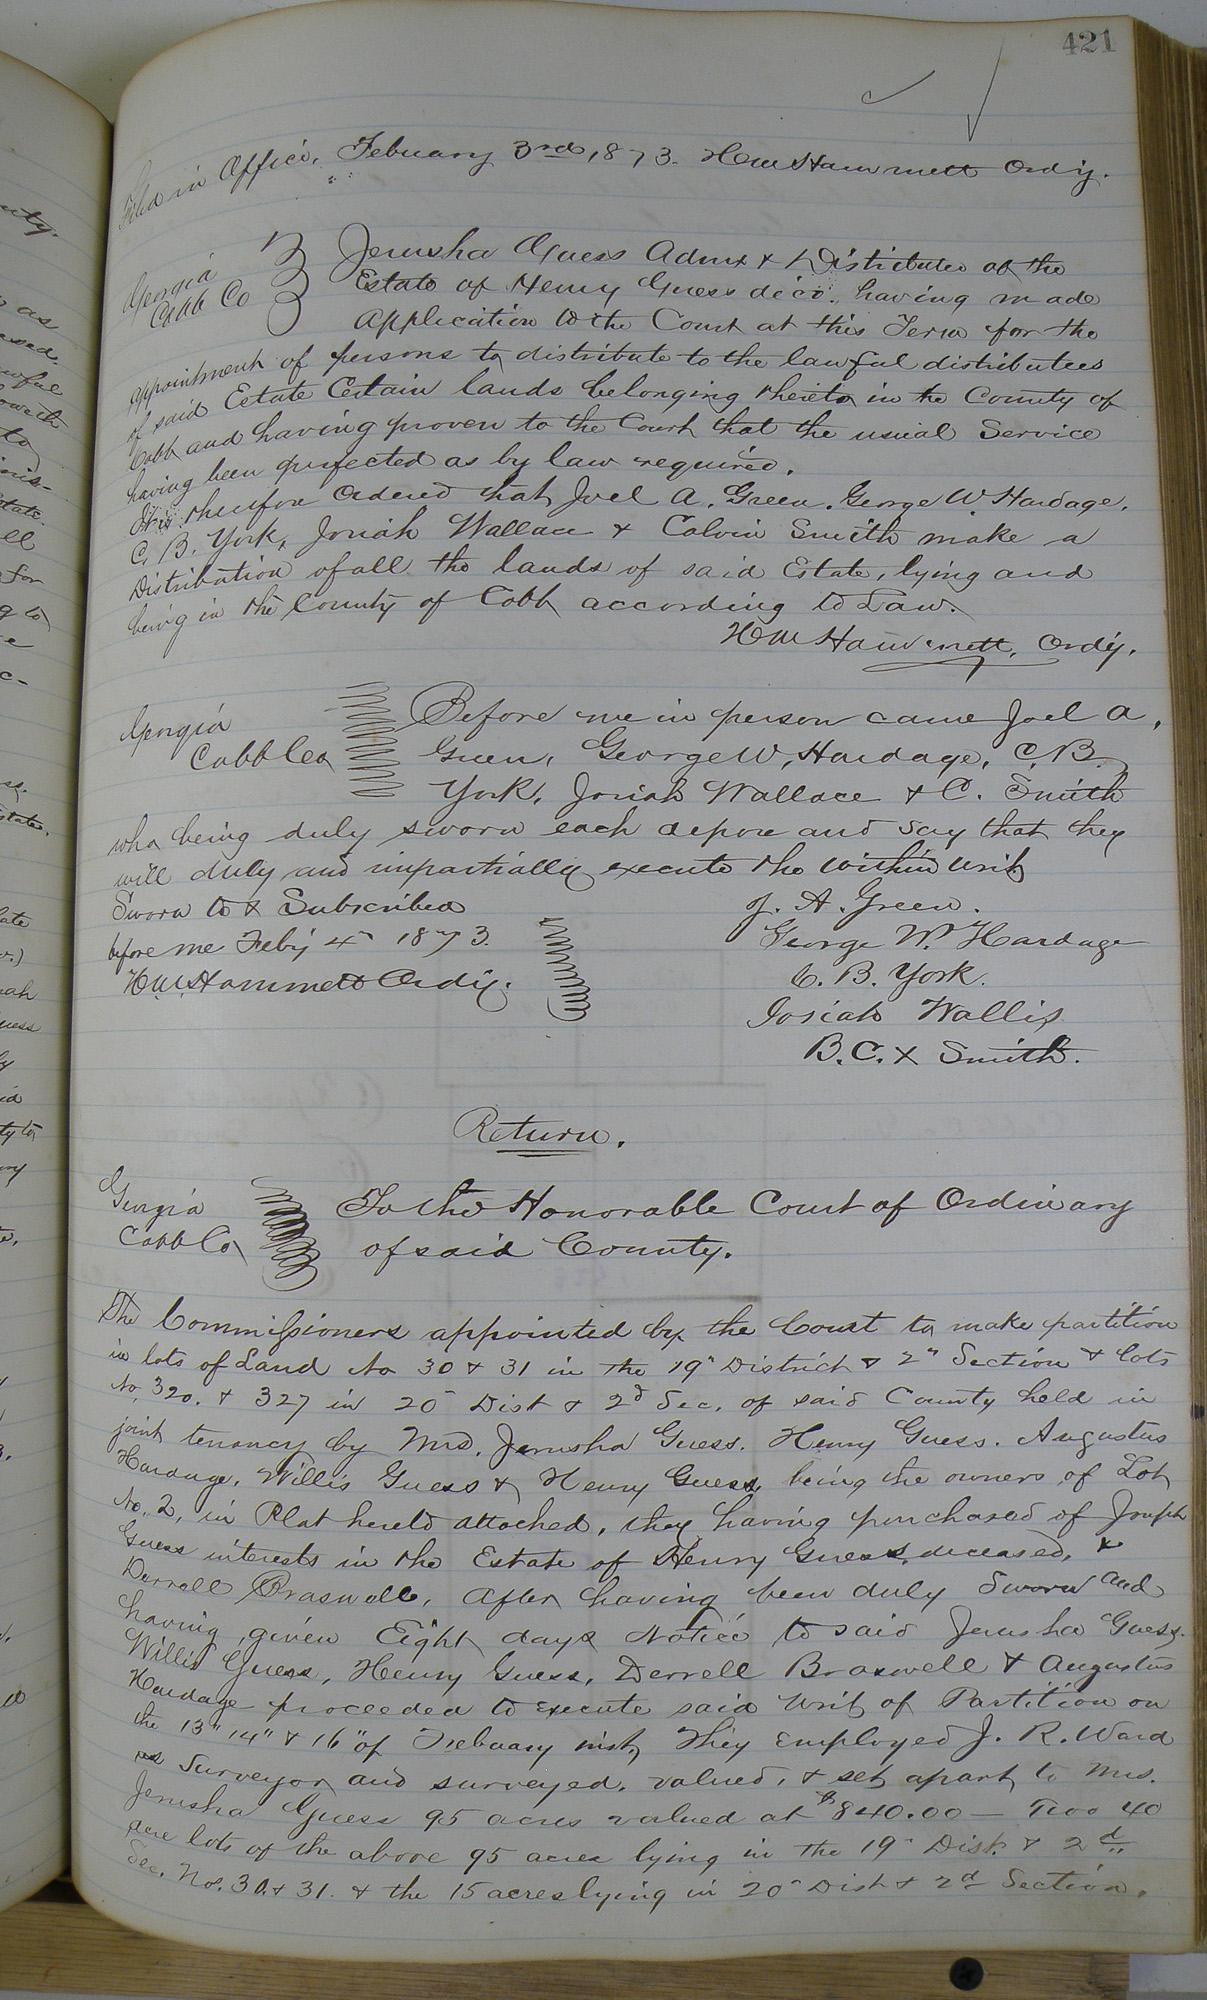 421
Filed in Office, Febuary 3rd, 1873. H M Hammett Ordy.
Georgia
Cobb Co
Jerusha Guess Admx & Distributee of the
Estate of Henry Guess decd. having made
Application to the Court at this Term for the
appointment of persons to distribute to the lawful distributees
of said Estate Certain lands belonging thereto in the County of
Cobb and having proven to the Court that the usual Service
having been perfected as by law required.
It is therefore Ordered that Joel A. Green. George W. Hardage.
C. B. York, Josiah Wallace & Calvin Smith make a
Distribution of all the lands of said Estate, lying and
being in the County of Cobb according to Law.
H M Hammett, Ordy.
Georgia
Cobb Co
Before me in person came Joel A.
Green, George W, Hardage, C. B.
York, Josiah Wallace & C. Smith
who being duly sworn each depose and say that they
will duly and impartially execute the within writ
Sworn to & Subscribed
before me Feby 4" 1873.
H M Hammett Ordy.
J. A. Green.
George W. Hardage
C. B. York.
Josiah Wallis
B. C. X Smith.
Return.
Georgia
Cobb Co
To the Honorable Court of Ordinary
of said County.
The Commissioners appointed by the Court to make partition
in lots of Land No 30 & 31 in the 19" District & 2" Section & Lots
No. 320. & 327 in 20" Dist & 2d Sec. of said County held in
joint tenancy by Mrs. Jerusha Guess. Henry Guess. Augustus
Hardage, Willis Guess & Henry Guess, being the owners of Lot
No. 2, in Plat hereto attached, they having purchased of Joseph
Guess interests in the Estate of Henry Guess, deceased, &
Derrell Braswell, After having been duly Sworn and
having given Eight days Notice to said Jerusha Guess.
Willis Guess, Henry Guess, Derrell Braswell & Augustus
Hardage proceeded to execute said Writ of Partition on
the 13" 14" & 16" of Febuary inst, They employed J. R. Ward
as Surveyor and surveyed, valued, & set apart to Mrs.
Jerusha Guess 95 acres valued at $840.00 — Two 40
acre lots of the above 95 acres lying in the 19" Dist. & 2d
Sec. Nos. 30. & 31. & the 15 acres lying in 20" Dist & 2d Section.